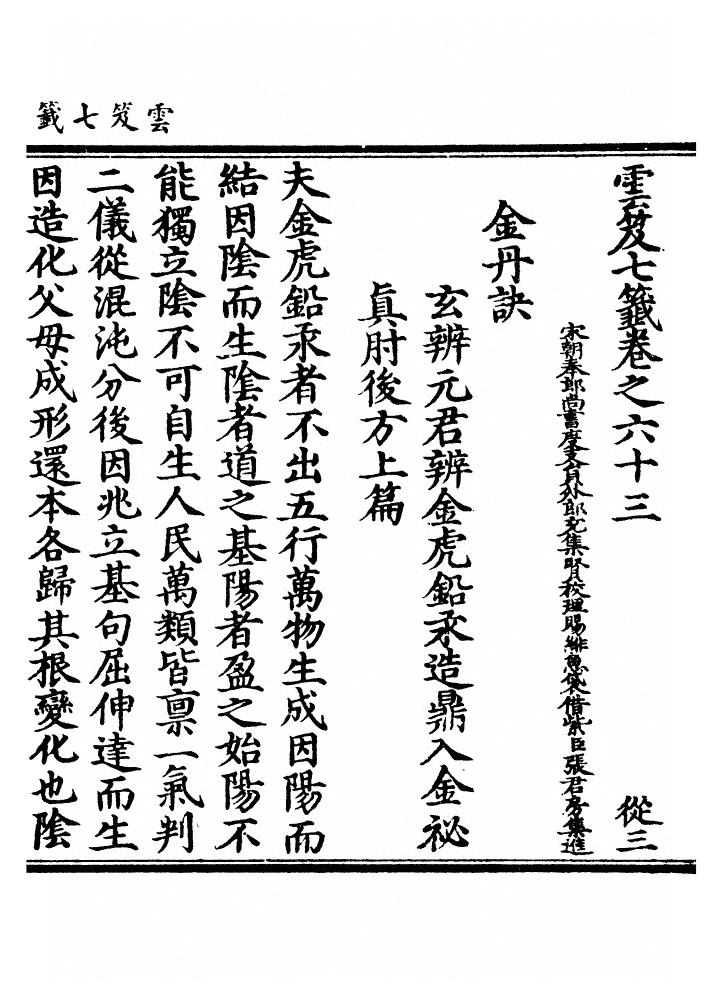 雲笈七籤
雲笈七籤卷之六十三 從三
宋朝奉郎尚書度支員外郎充集賢校理賜緋魚袋借紫臣張君房集進
金丹訣
玄辨元君辨金虎鉛汞造鼎入金祕
真肘後方上篇
夫金虎鉛汞者不出五行萬物生成因陽而
結因陰而生陰者道之基陽者盈之始陽不
能獨立陰不可自生人民萬類皆禀一氣判
二儀從混沌分後因兆立基句屈伸達而生
因造化父母成形還本各歸其根變化也陰